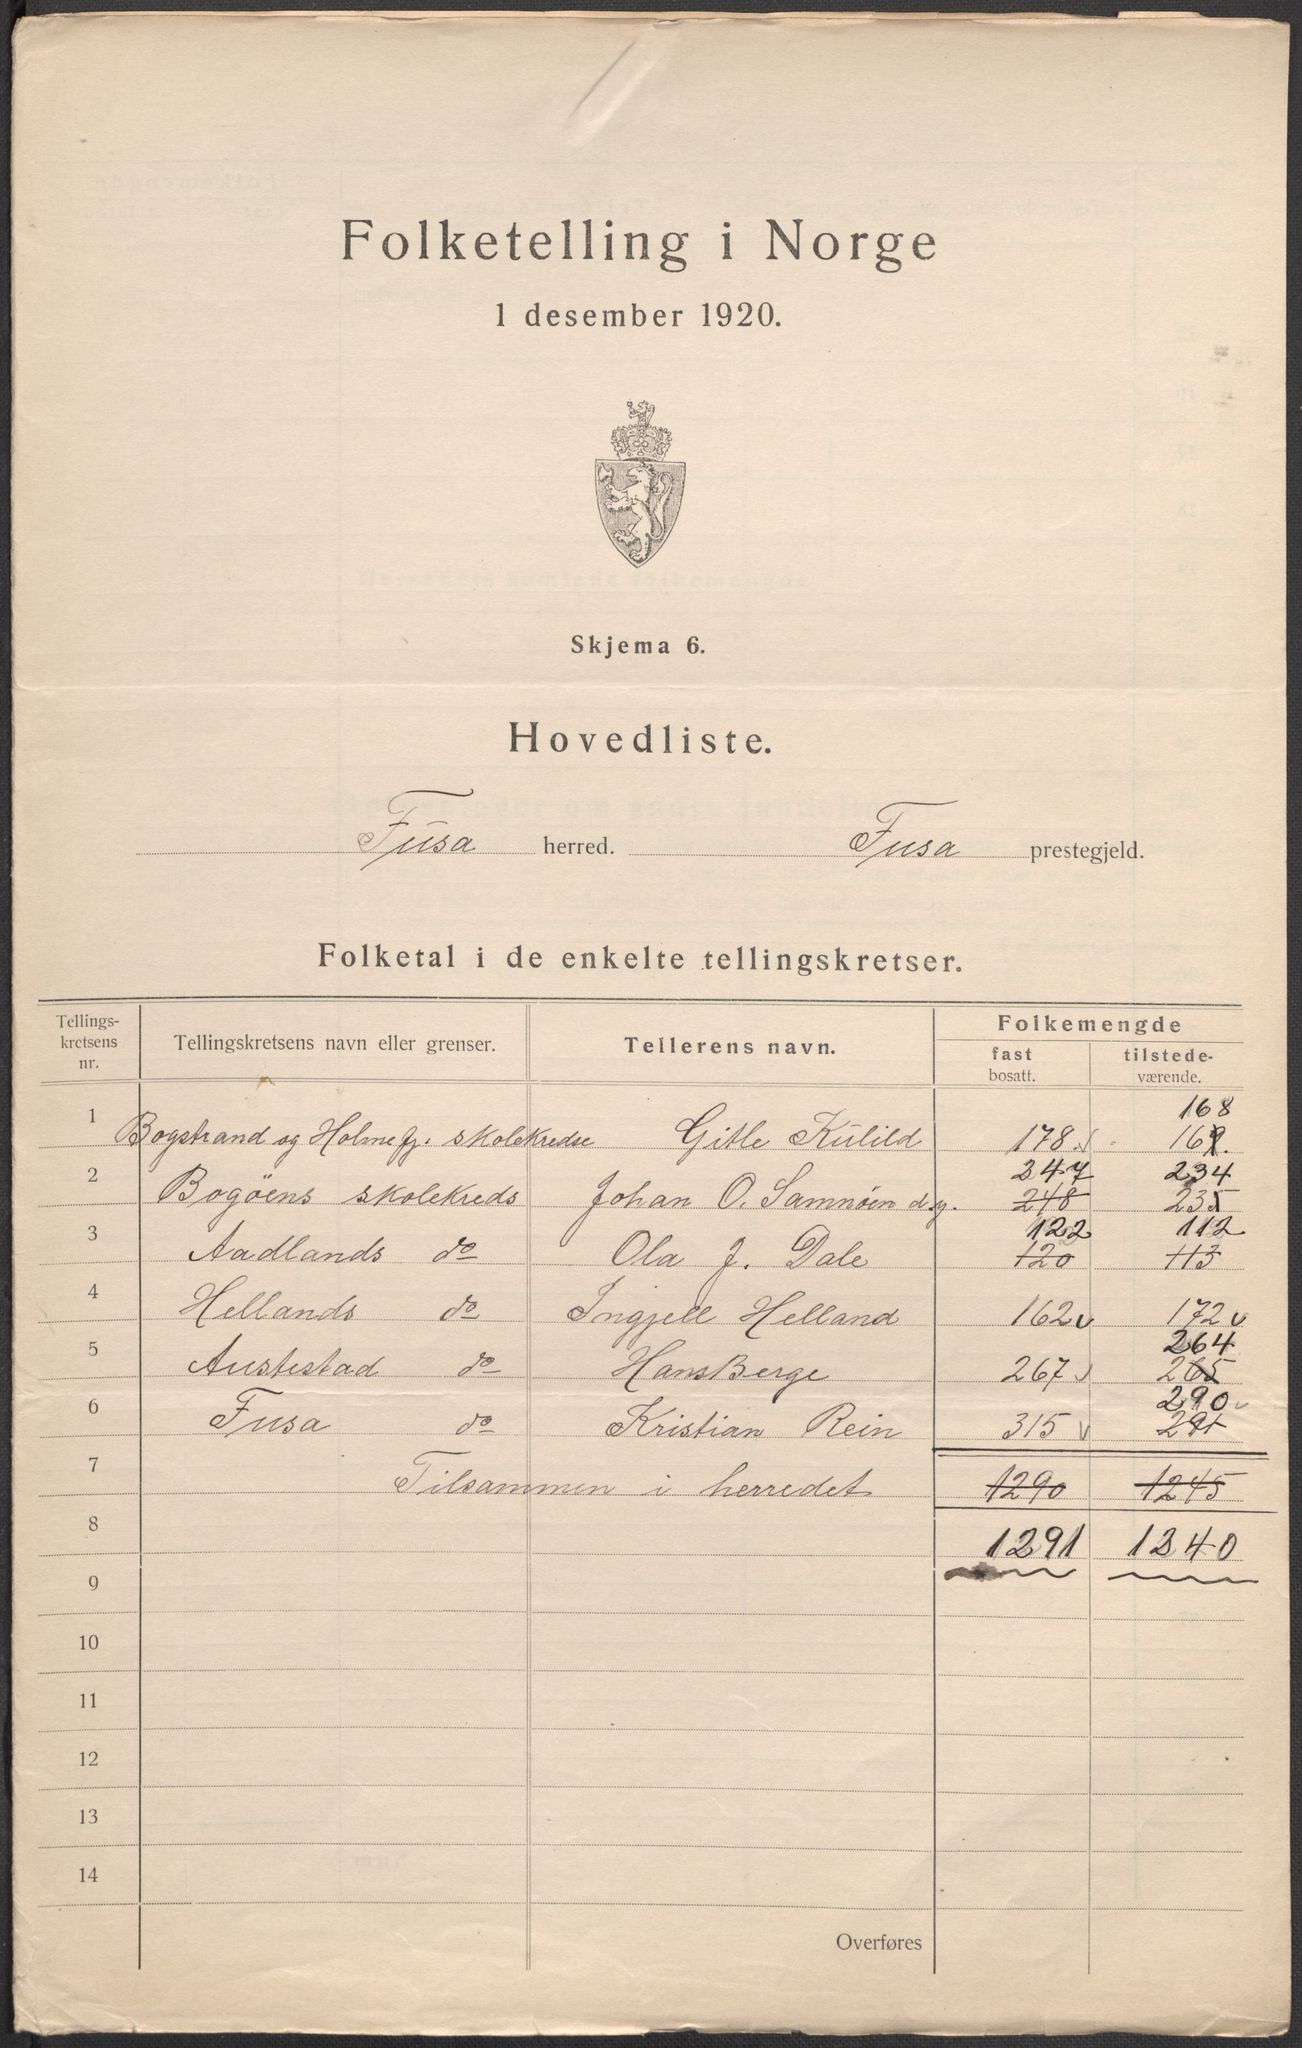 Folketelling i Norge
1 desember 1920.
Skjema 6.
Hovedliste.
Fusa herred. Fusa prestegjeld.
Folketal i de enkelte tellingskretser.
Tellings-
kretsens
nr.
Tellingskretsens navn eller grenser.
Tellerens navn.
Folkemengde
fast
bosatt.
tilstede-
værende.
168
1 Bogstrand og Holmefj. skolekredse Gitle Kulild 178 169.
247 234
2 Bogøens skolekreds Johan O. Samnøen d.y. 248 235
122 112
3 Aadlands do Ola J. Dale 120 113
4 Hellands do Ingjell Helland 162 172
264
5 Austestad do Hans Berge 267 265
290
6 Fusa do Kristian Rein 315 291
7 Tilsammen i herredet 1290 1245
8 1291 1240
9
10
11
12
13
14
Overføres